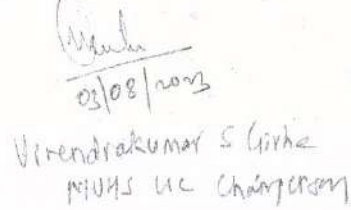 03/08/2023
Virendrakumar S Girhe
MUHS LIC Chairperson